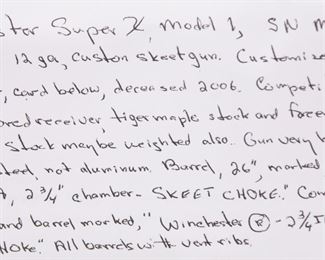 ster Super X, Model 1, SN M
12 ga, custon skeetgun. Customize
, card below, deceased 2006. Competi
ored receiver, tiger maple stock and fore
Stock maybe weighted also. Gun very
steel, not aluminum. Barrel, 26", marked
, 2 3/4" chamber - SKEET CHOKE." Com
and barrel marked, "Winchester ® - 2 3/4 I
HOKE." All barrels with vent ribs.